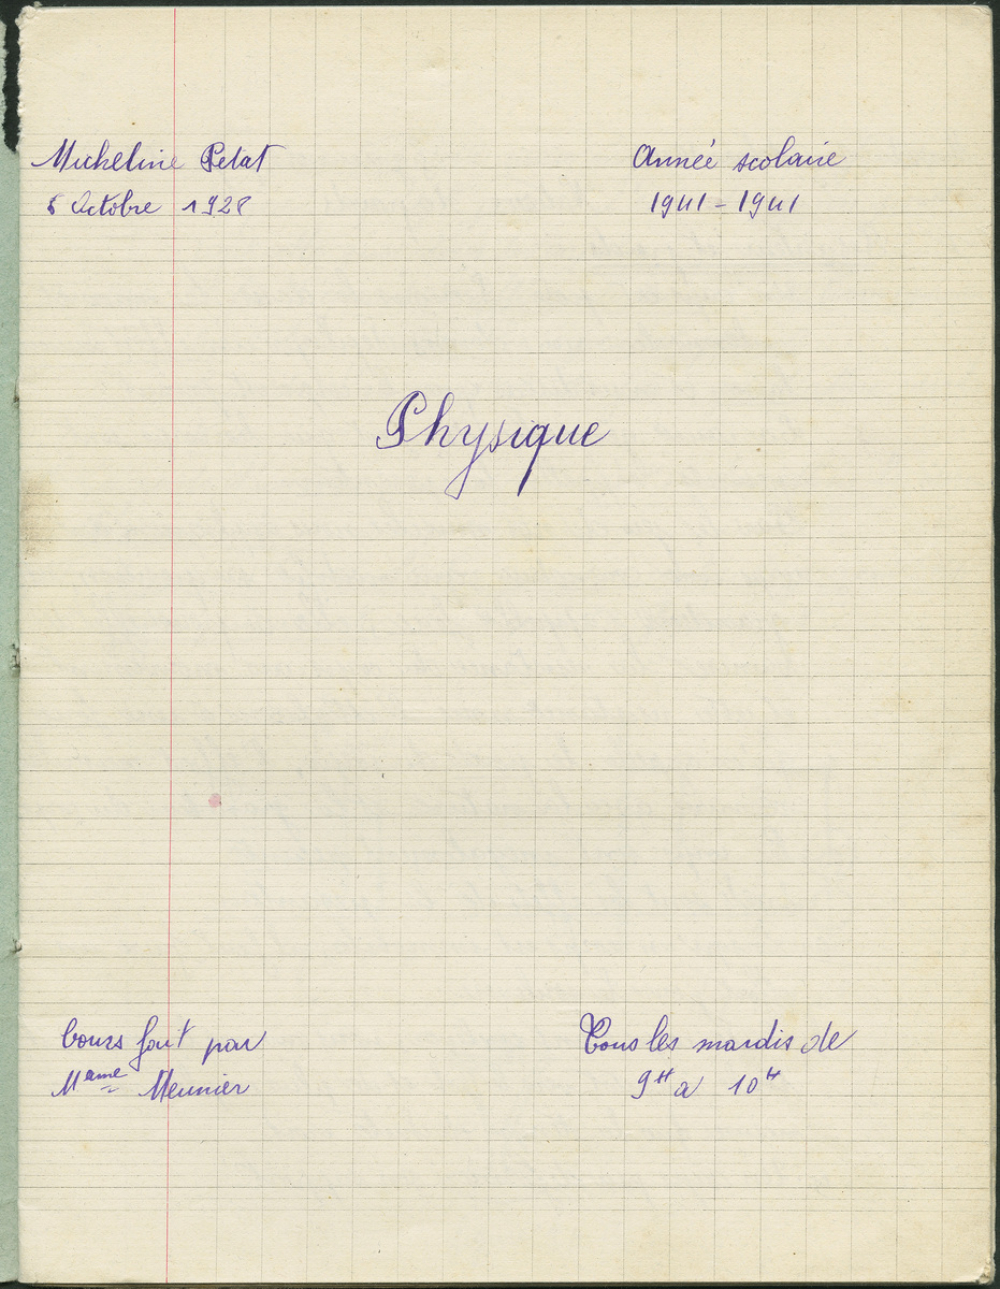 Micheline Petat
6 Octobre 1928
Année scolaire
1941-1941
Physique
Cours fait par
Mame Meunier
Tous les mardis de
9H à 10H